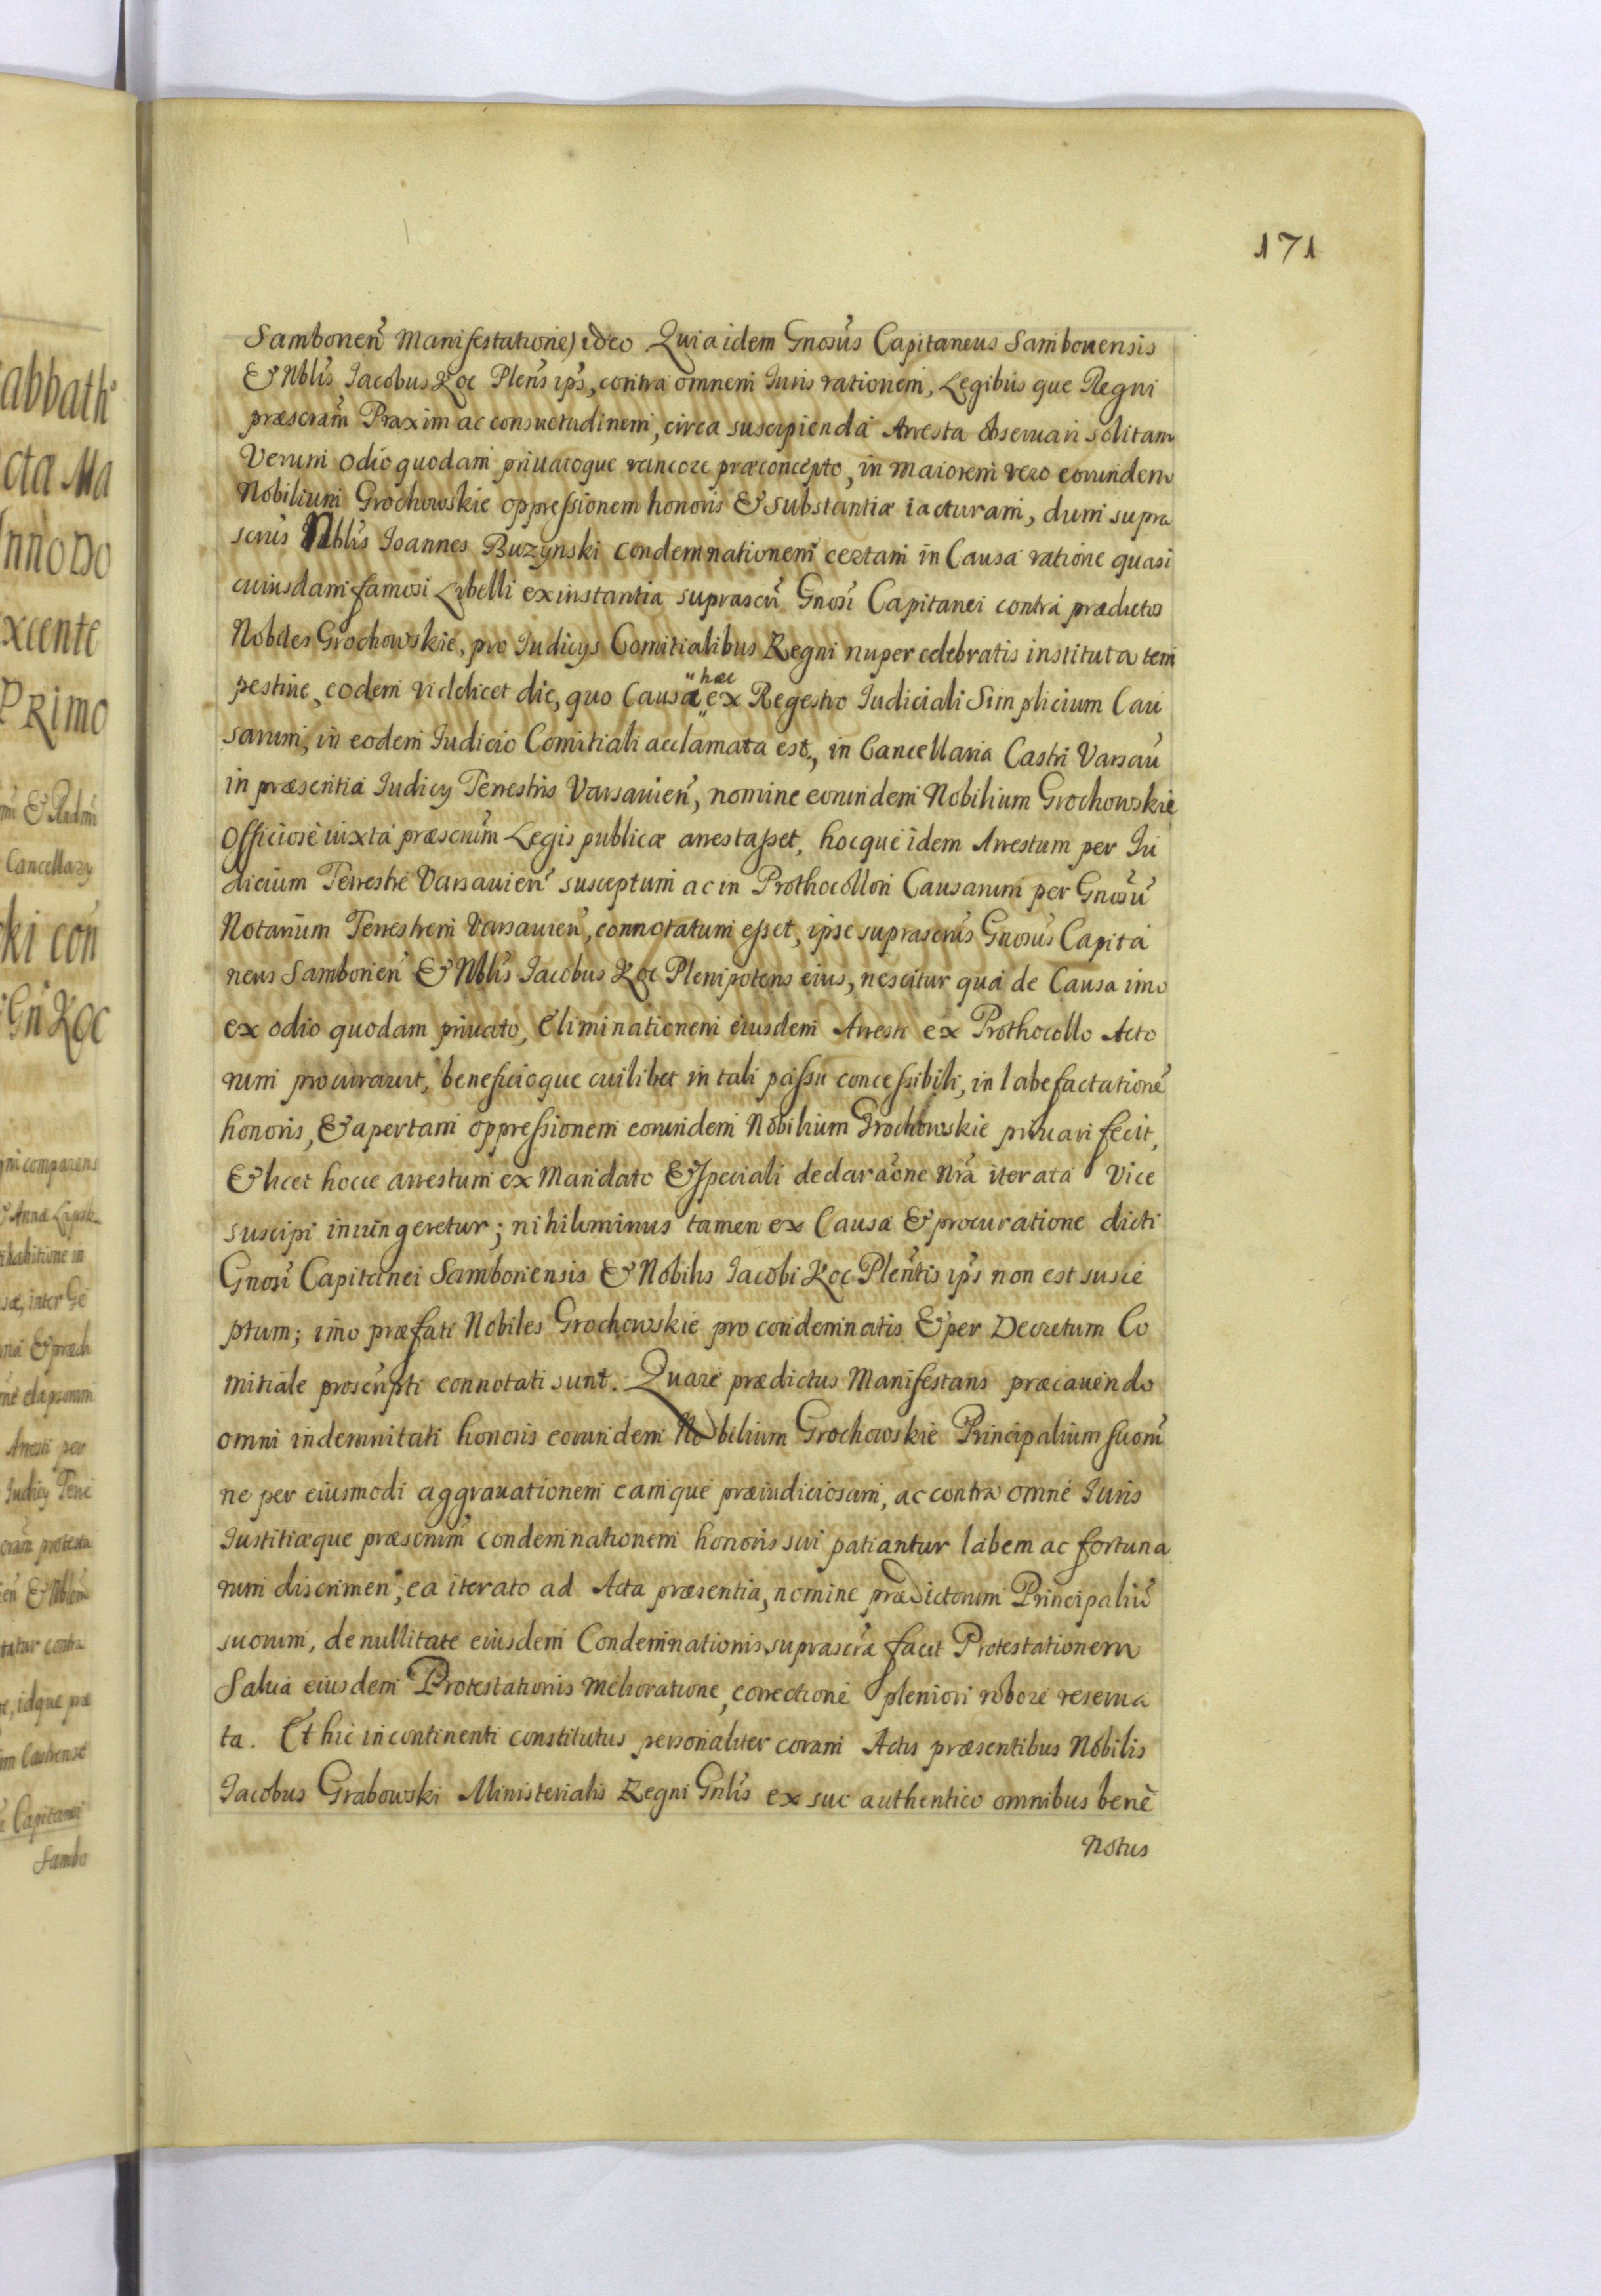 171
Samboneñ Manifestatione) ideo Quia idem Gnosus Capitaneus Sambouensis
& Nblis Jacobus Koc Pleñs ips, contra omnem Iuris rationem, Legibus que Regni
præscram Praxim ac consuetudinem, circa suscipienda Arresta obseruari solitam
Verum odio quodam priuatoque rancore præconcepto, in maiorem vero eorundem
Nobilium Grochowskie oppressionem honoris & substantiæ iacturam, dum supra
scrius Nblis Joannes Buzynski condemnationem certam in Causa ratione quasi
cuiusdam famosi Libelli ex instantia suprascri Gnosi Capitanei contra prædictos
Nobiles Grochowskie, pro Iudicys Comitialibus Regni nuper celebratis instituta tem
pestiue, eodem videlicet die, quo Causa hæc ex Regestro Iudiciali Simplicium Cau
sarum, in eodem Iudicio Comitiali acclamata est, in Cancellaria Castri Varsau
in præsentia Iudicy Terrestris Varsauieñ, nomine eorundem Nobilium Grochowskie
Officiose iuxta præscrium Legis publicæ arrestasset, hocque idem Arrestum per Iu
dicium Terrestre Varsauieñ susceptum ac in Prothocollon Causarum per Gnosu
Notarium Terrestrem Varsauieñ, connotatum esset, ipse suprascrius Gnosus Capita
neus Samborieñ & Nblis Jacobus Koc Plenipotens eius, nescitur qua de Causa imo
ex odio quodam priuato, eliminationem eiusdem Arresti ex Prothocollo Acto
rum procurauit, beneficioque cuilibet in tali passu concessibili, in labefactatione
honoris, & apertam oppressionem eorundem Nobilium Grochowskie priuari fecit,
& licet hocce arrestum ex Mandato & speciali declaraone Nra iterata Vice
suscipi iniungeretur; nihilominus tamen ex Causa & procuratione dicti
Gnosi Capitanei Samboriensis & Nobilis Jacobi Koc Pleñtis ips non est susce
ptum; imo præfati Nobiles Grochowskie pro condemnatis & per Decretum Co
mitiale proscripti connotati sunt. Quare prædictus Manifestans præcauendo
omni indemnitati honoris eorundem Nobilium Grochowskie Principalium suom
ne per eiusmodi aggrauationem eamque præiudiciosam, ac contra omne Iuris
Iustitiæque præscrium condemnationem honoris sui patiantur labem ac fortuna
rum discrimen; ea iterato ad Acta præsentia, nomine prædictorum Principaliu
suorum, de nullitate eiusdem Condemnationis suprascræ facit Protestationem
Salua eiusdem Protestationis melioratione, correctione pleniori robore reserua
ta. Et hic incontinenti constitutus personaliter coram Actis præsentibus Nobilis
Jacobus Grabowski Ministerialis Regni Gnlis ex suc authentico omnibus bene
Notus